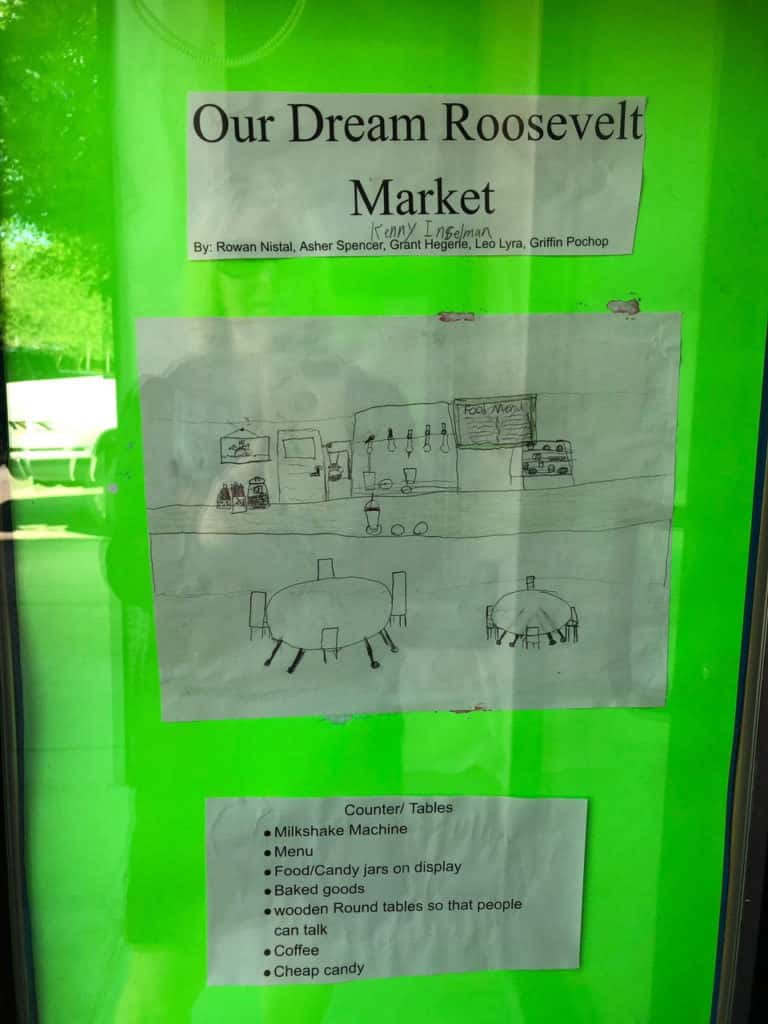 Our Dream Roosevelt
Market
Kenny Ingelman
By: Rowan Nistal, Asher Spencer, Grant Hegerle, Leo Lyra, Griffin Pochop
Food Menu
Counter/ Tables
● Milkshake Machine
● Menu
● Food/Candy jars on display
● Baked goods
● wooden Round tables so that people
can talk
● Coffee
● Cheap candy